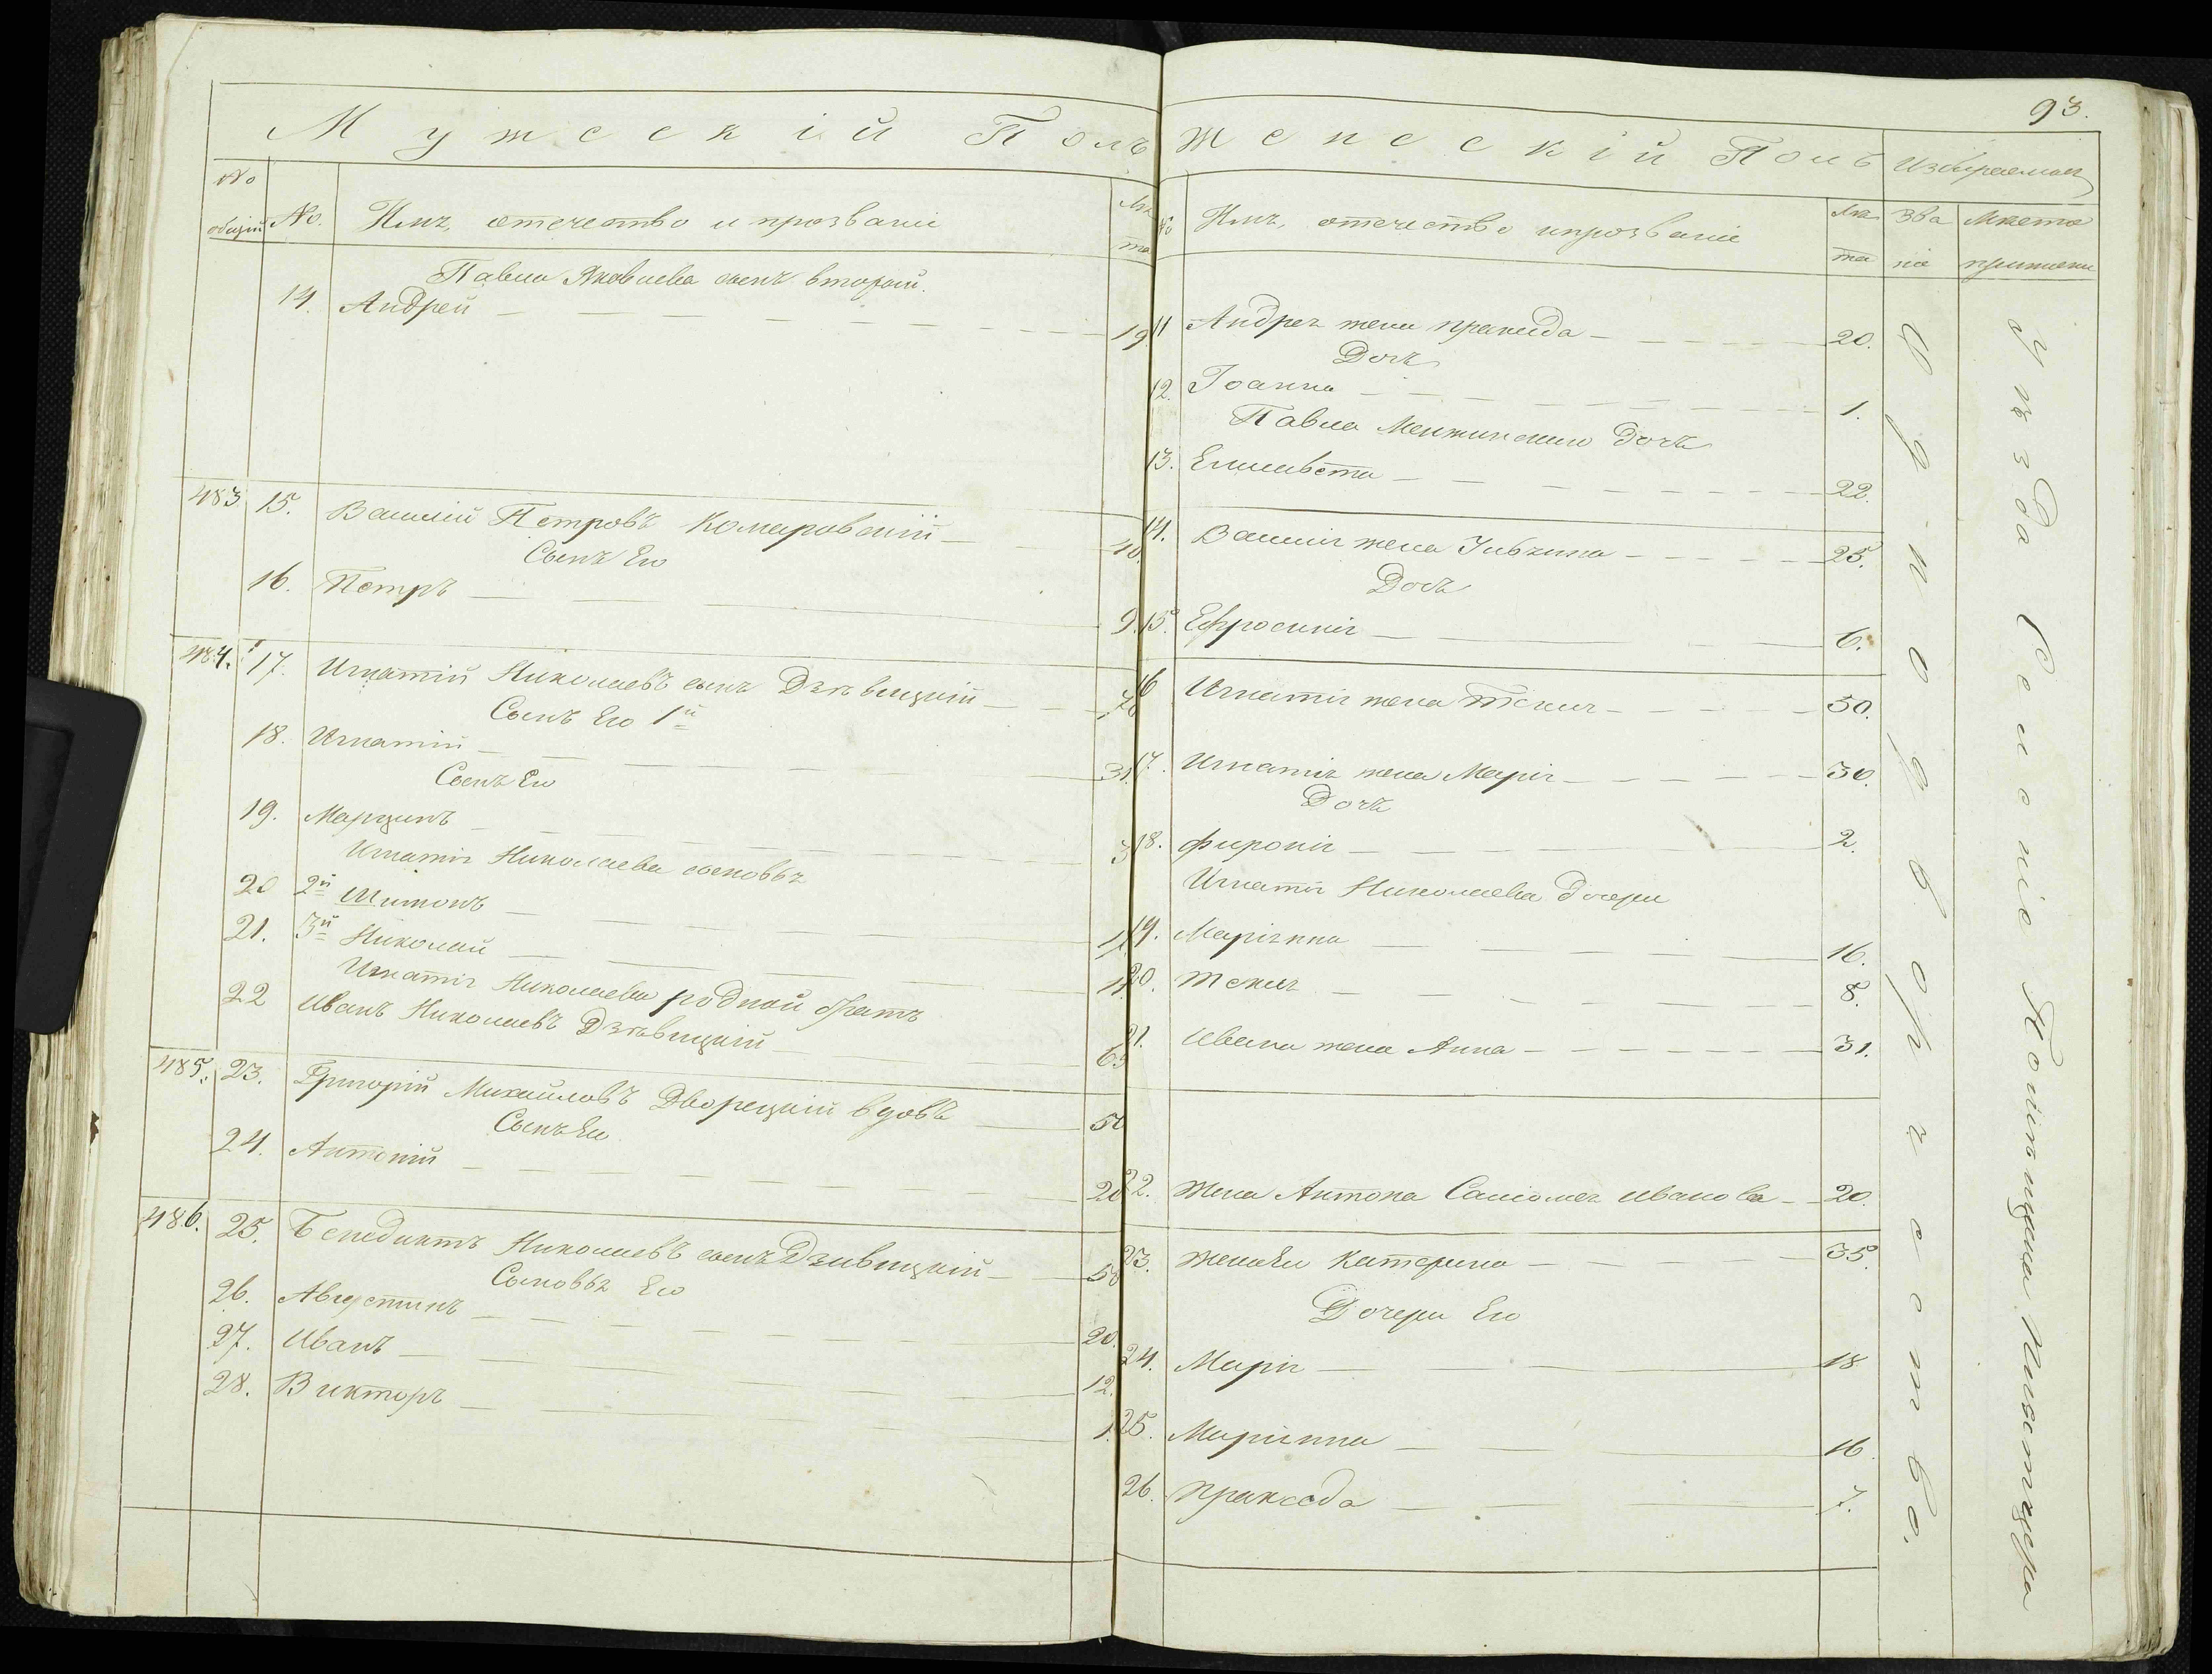 93.
Мужескій Полъ
№ общій
№
Имя, отечество и прозваніе
Лѣта
Павла Яковлева сынъ второй.
14. Андрей 19
483 15. Василій Петровъ Комаровскій 40.
Сынъ Его
16. Петръ 9.
484. 17. Игнатій Николаевъ сынъ Дзѣвицкій
Сынъ Его 1й
18. Игнатій 31.
Сынъ Его
19. Марцинъ 3
Игнатія Николаева сыновья
20 2й Шимонъ
21. 3й Николай
Игнатія Николаева родной братъ
22 Иванъ Николаевъ Дзѣвицкій 65
485. 23. Григорій Михайловъ Дворецкій вдовъ 50
Сынъ Его
24. Антоній 20
486. 25. Бенедиктъ Николаевъ сынъ Дзивицкій 58
Сыновья Его
26. Августинъ 20.
27. Иванъ 12.
28. Викторъ 1.
Женскій Полъ
№
Имя, отечество и прозваніе
Лѣта
Избираемыя
Званіе
Мѣста
11 Андрея жена Праксида 20.
Дочь
12. Іоанна 1.
Павла Менжинскаго дочь
13. Елисавета 22.
14. Василія жена 25.
Дочь
15. Ефросинія 6.
16 Игнатія жена Текля 50.
17. Игнатія жена Марія 30.
Дочь
18. Фироня 2.
Игнатія Николаева дочери
19. Маріянна 16.
20. Текля 8.
21. Ивана жена Анна 31.
22. Жена Антона Саломея Иванова 20.
23. Жена Его Катерина 35.
Дочери Его
24. Марія 18
25. Маріянна 16.
26. Праксeда 7.
Однодворчество.
уѣзда Селеніе